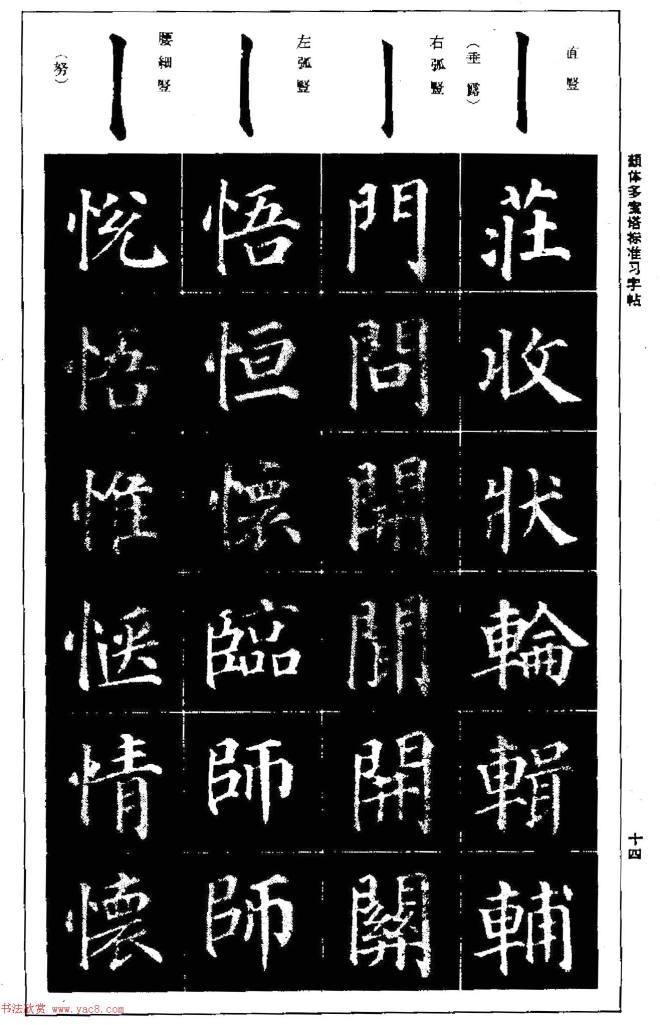 顏体多宝塔标准习字帖
十四
直竪
（垂露）
右弧竪
左弧竪
腰細竪
（努）
莊收狀輪輯輔
門問開閒開關
悟恒懷臨師師
悅悟惟愜情懷
书法欣赏 www.yac8.com